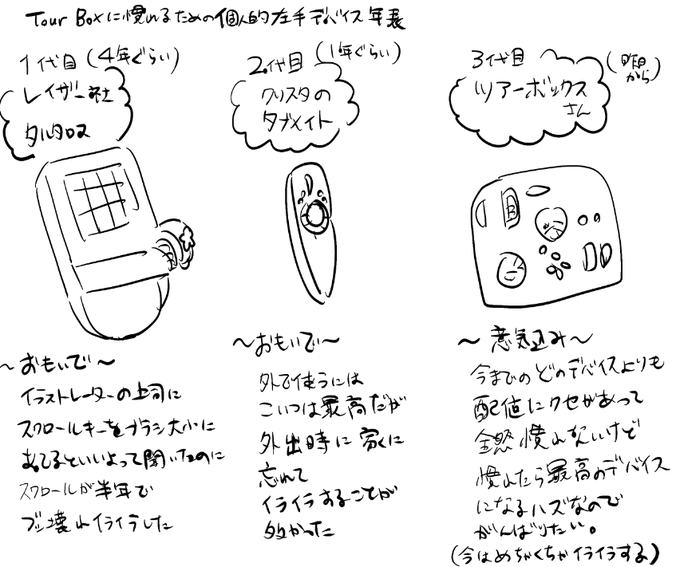 Tour Boxに慣れるための個人的左手デバイス年表
1代目(4年ぐらい)
レイザー社
タルタロス
～おもいで～
イラストレーターの上司に
スクロールキーをブラシ大小に
あてるといいよって聞いたのに
スクロールが半年で
ブッ壊れイライラした
2代目(1年ぐらい)
クリスタの
タブメイト
～おもいで～
外で使うには
こいつは最高だが
外出時に家に
忘れて
イライラすることが
多かった
3代目(昨日から)
ツアーボックス
さん
～意気込み～
今までのどのデバイスよりも
配値にクセがあって
全然慣れないけど
慣れたら最高のデバイス
になるハズなので
がんばりたい。
(今はめちゃくちゃイライラする)